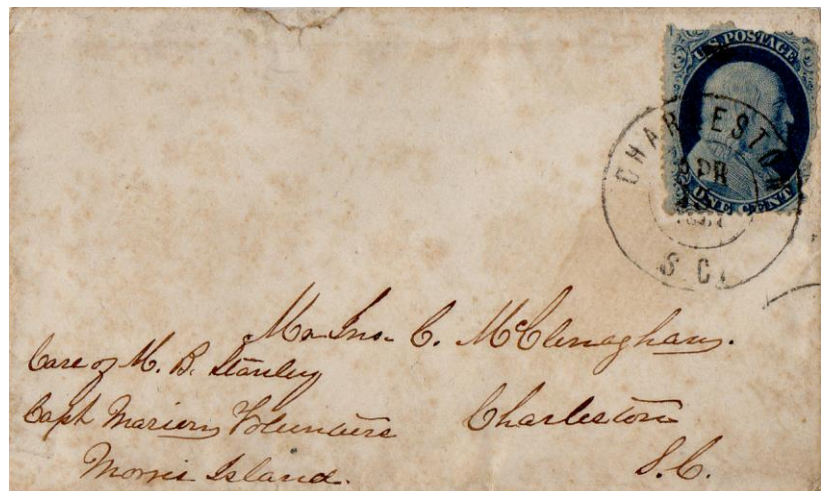 U.S. POSTAGE
ONE CENT
CHARLESTON
APR
S.C.
Mr. Jno. C. McClenaghan.
Care of M. B. Stanley
Capt Marion Volunteers
Charleston
Morris Island.
S.C.